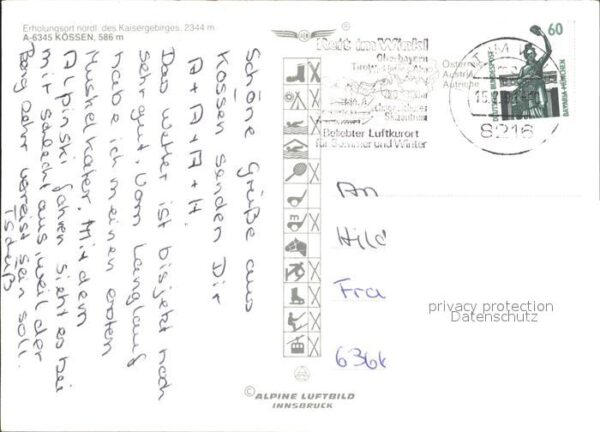 Erholungsort nördl. des Kaisergebirges, 2344 m
A-6345 KÖSSEN, 586 m
Schöne Grüße aus
Kössen senden Dir
A + A + A + H.
Das Wetter ist bis jetzt noch
sehr gut, vom Langlauf
habe ich meinen ersten
Muskelkater. Mit dem
Alpinski fahren sieht es bei
mir schlecht aus weil der
Berg sehr vereist sein soll.
Tschüß
Reit im Winkl
Oberbayern
Beliebter Luftkurort
für Sommer und Winter
Österreich
Austria
Autriche
8216
60
DEUTSCHE BUNDESPOST
BAVARIA MÜNCHEN
An
Hild
Fra
636
privacy protection
Datenschutz
© ALPINE LUFTBILD
INNSBRUCK